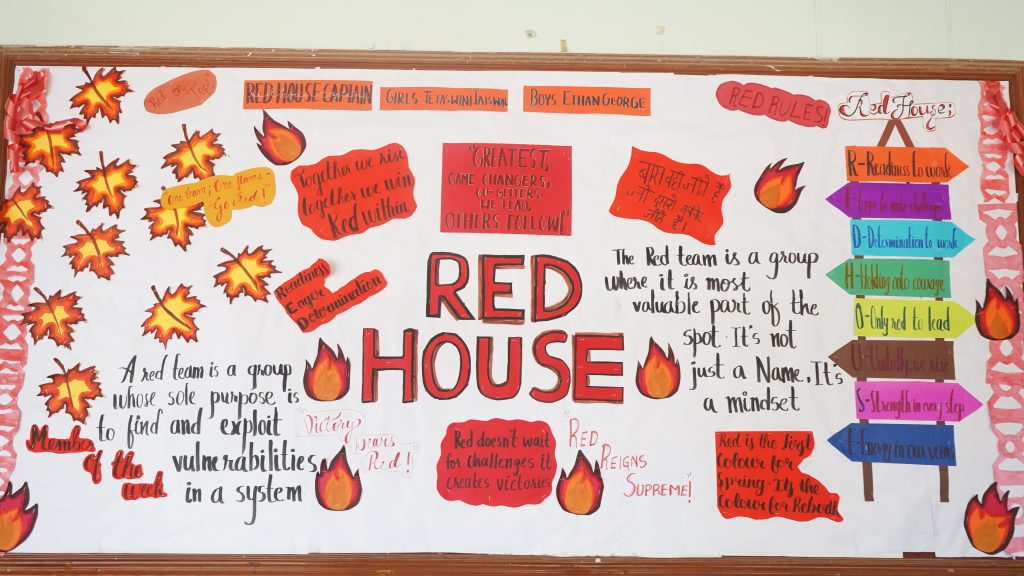 "Red on Top!"
RED HOUSE CAPTAIN
GIRLS TEJASWINI JAISWAL
BOYS ETHAN GEORGE
RED RULES
Red House;
"One team, One Home-
Go Red!"
Together we rise
together we win
Red within
"GREATEST,
GAME CHANGERS,
GO-GETTERS-
WE LEAD,
OTHERS FOLLOW!"
जीते हैं
जीते हैं!
R-Readiness to work
E-Eager to make challenges
D-Determination to work
H-Holding onto courage
O-Only red to lead
U-Unitedly, we rise
S-Strength in every step
E-Energy in our veins
Readiness
Eager
Determination
RED
HOUSE
The Red team is a group
where it is most
valuable part of the
spot. It's not
just a Name, It's
a mindset
A red team is a group
whose sole purpose is
to find and exploit
vulnerabilities
in a system
Member
of the
week
"Victory
Wears
Red!
Red doesn't wait
for challenges it
creates victories
"RED
REIGNS
SUPREME!"
Red is the First
Colour for
Spring. It's the
Colour for Rebirth